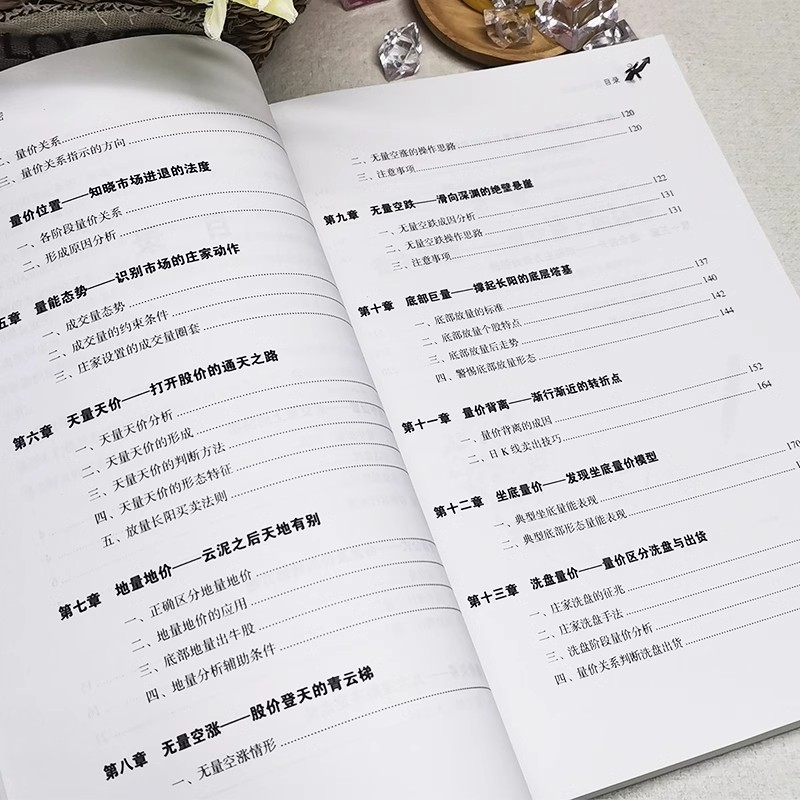 LOW
二、量价关系
三、量价关系指示的方向
量价位置——知晓市场进退的法度
一、各阶段量价关系
二、形成原因分析
五章 量能态势——识别市场的庄家动作
一、成交量态势
二、成交量的约束条件
三、庄家设置的成交量圈套
第六章 天量天价——打开股价的通天之路
一、天量天价分析
二、天量天价的形成
三、天量天价的判断方法
四、天量天价的形态特征
五、放量长阳买卖法则
第七章 地量地价——云泥之后天地有别
一、正确区分地量地价
二、地量地价的应用
三、底部地量出牛股
四、地量分析辅助条件
第八章 无量空涨——股价登天的青云梯
一、无量空涨情形
目录
二、无量空涨的操作思路 120
三、注意事项 120
第九章 无量空跌——滑向深渊的绝壁悬崖
一、无量空跌成因分析 122
二、无量空跌操作思路 131
三、注意事项 131
第十章 底部巨量——撑起长阳的底层塔基
一、底部放量的标准 137
二、底部放量个股特点 140
三、底部放量后走势 142
四、警惕底部放量形态 144
第十一章 量价背离——渐行渐近的转折点
一、量价背离的成因 152
二、日K线卖出技巧 164
第十二章 坐底量价——发现坐底量价模型
一、典型坐底量能表现 170
二、典型底部形态量能表现
第十三章 洗盘量价——量价区分洗盘与出货
一、庄家洗盘的征兆
二、庄家洗盘手法
三、洗盘阶段量价分析
四、量价关系判断洗盘出货